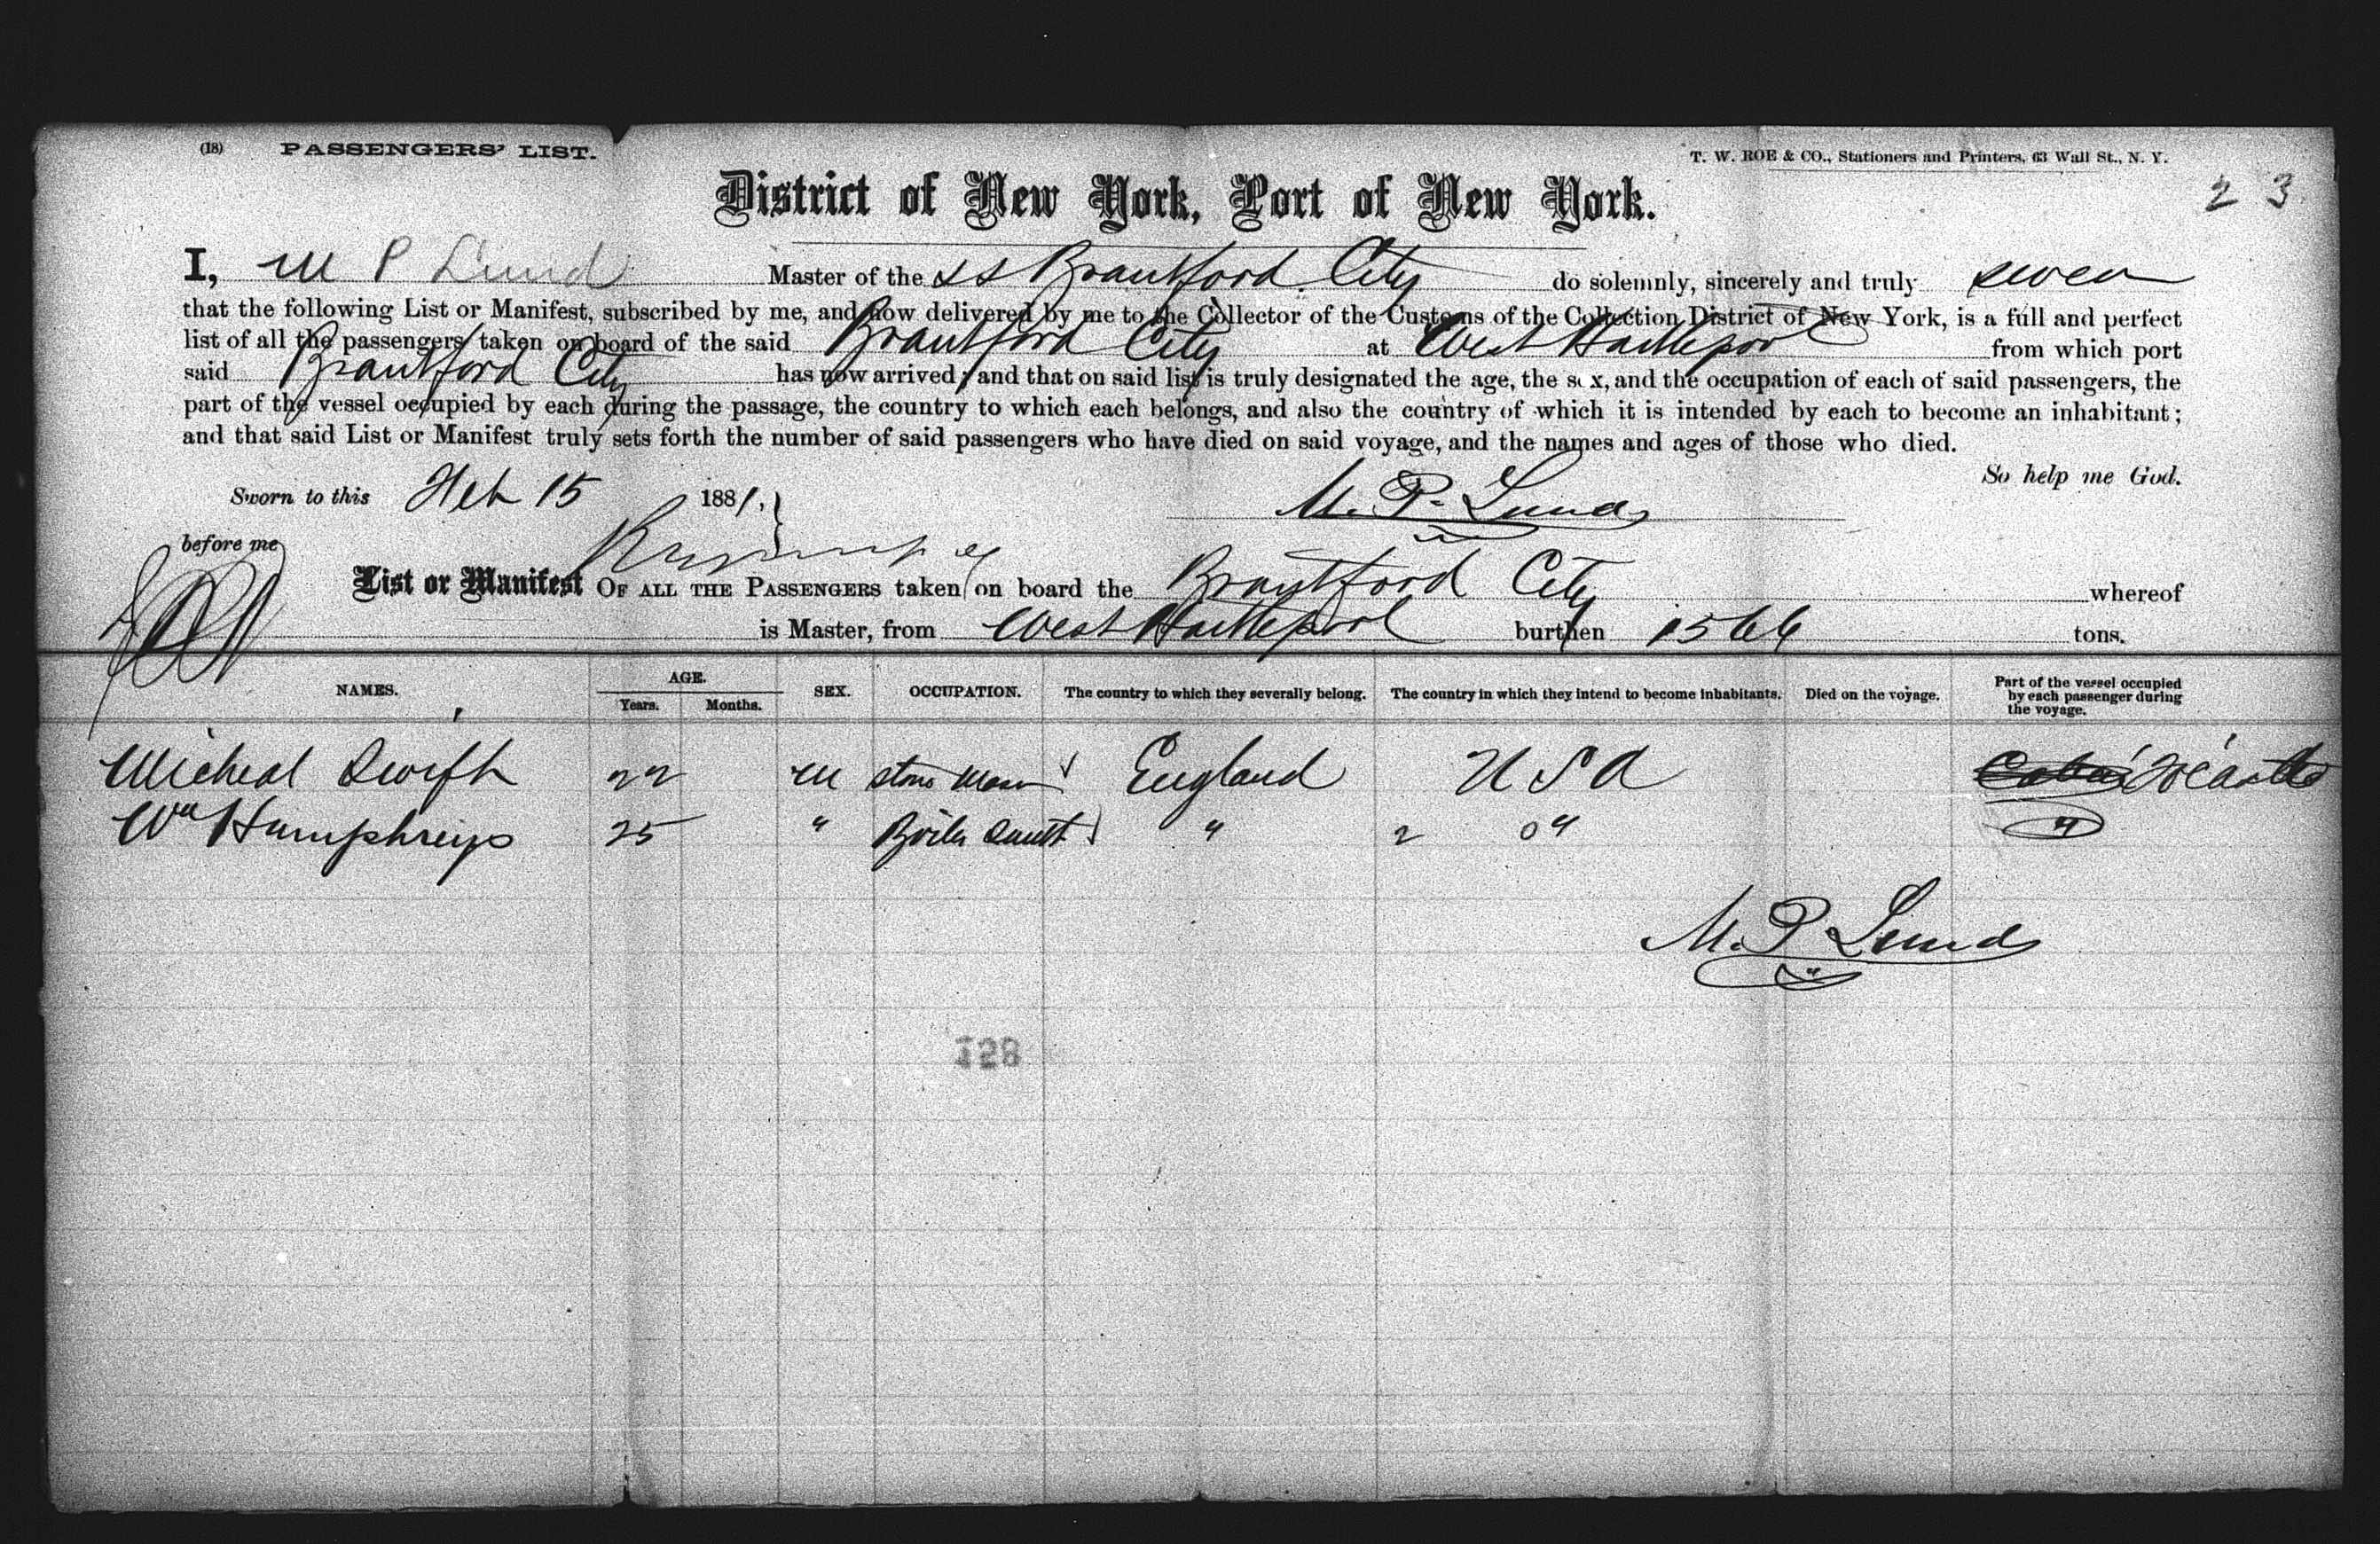 (18) PASSENGERS' LIST.
T. W. ROE & CO., Stationers and Printers, 63 Wall St., N. Y.
2 3
District of New York, Port of New York.
I, M P Lund Master of the SS Brantford City do solemnly, sincerely and truly swear
that the following List or Manifest, subscribed by me, and now delivered by me to the Collector of the Customs of the Collection District of New York, is a full and perfect
list of all the passengers taken on board of the said Brantford City at West Hartlepool from which port
said Brantford City has now arrived; and that on said list is truly designated the age, the sex, and the occupation of each of said passengers, the
part of the vessel occupied by each during the passage, the country to which each belongs, and also the country of which it is intended by each to become an inhabitant;
and that said List or Manifest truly sets forth the number of said passengers who have died on said voyage, and the names and ages of those who died.
So help me God.
Sworn to this Feb 15 1881,
M. P. Lund
before me
List or Manifest OF ALL THE PASSENGERS taken on board the Brantford City whereof
is Master, from West Hartlepool burthen 1566 tons.
NAMES. AGE. Years. Months. SEX. OCCUPATION. The country to which they severally belong. The country in which they intend to become inhabitants. Died on the voyage. Part of the vessel occupied by each passenger during the voyage.
Micheal Swift 22 M stone Mason England U S A
Wm Humphreys 25 " Boiler Smith " 2 0 " "
M. P. Lund
128